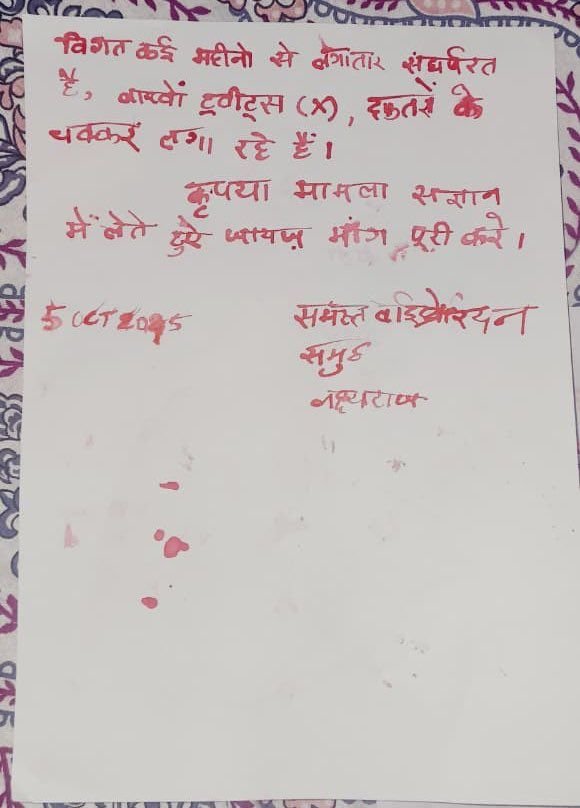 विगत कई महीनो से लगातार संघर्षरत
है, लाखों ट्वीट्स (X), दफ्तरों के
चक्कर लगा रहे हैं।
कृपया मामला संज्ञान
में लेते हुऐ जायज़ माँग पूरी करे।
5 OCT 2025
समस्त लाइब्रेरियन
समुह